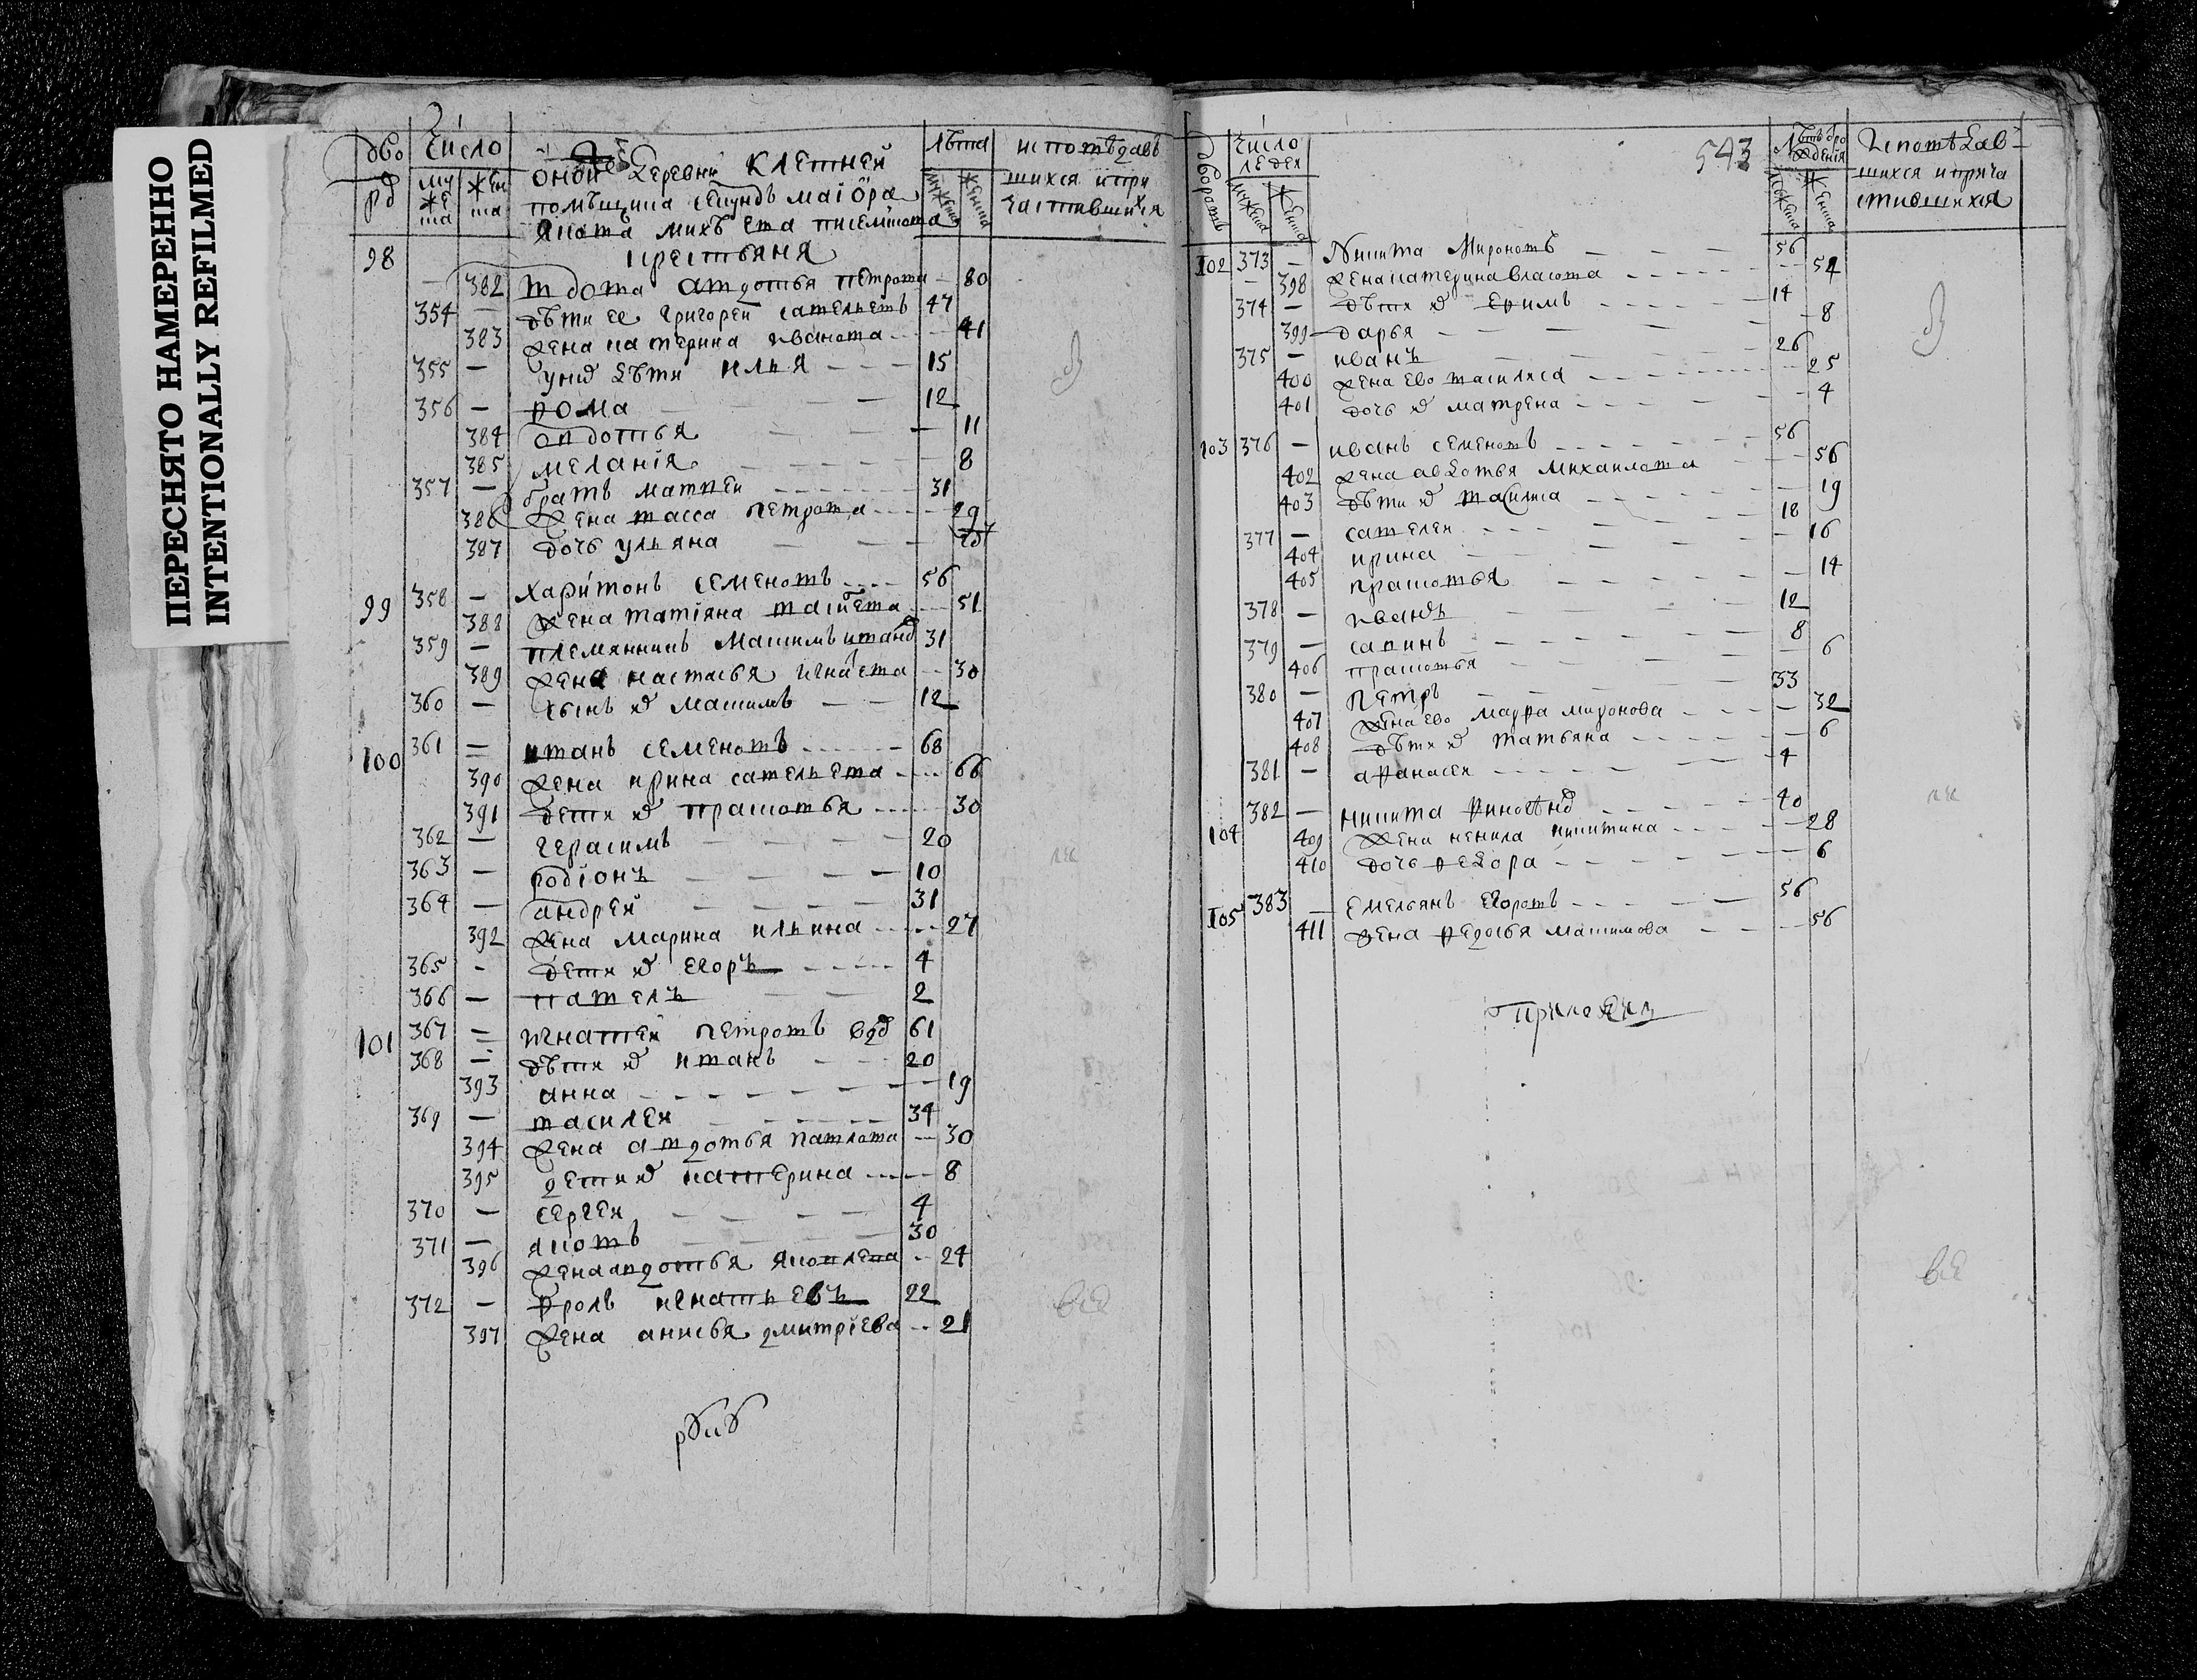 ПЕРЕСНЯТО НАМЕРЕННО
INTENTIONALLY REFILMED
дворъ
Число
муӂеска
ӂенска
оной деревни Клетней
помѣщика секундъ маіора
якова михѣева писемскова
крестьяня
лѣта
мужеска
женска
исповѣдав
шихся и при
частившихся
98
— 382 вдова авдотья петрова — 80
354 — дѣти ее григореи савельевъ 47
383 жена катерина иванова — 41
355 — у них дѣти илья — 15
356 — фома — 12
384 овдотья — 11
385 меланія — 8
357 — братъ матвеи — 31
386 жена васса петрова — 29
387 дочь ульяна —
99 358 — харитонъ семеновъ — 56
388 жена татіяна васильева — 51
359 — племянникъ максимъ иванов 31
389 жена настасья игнатева — 30
360 — сынъ их максимъ — 12
100 361 — иванъ семеновъ — 68
390 жена ирина савельева — 66
391 дети их прасковья — 30
362 — герасимъ — 20
363 — родіонъ — 10
364 — андрей — 31
392 жена марина ильина — 27
365 - дети их егоръ — 4
366 — павелъ — 2
101 367 — игнатей петровъ вдв 61
368 — дѣти их иванъ — 20
393 анна — 19
369 — василеи — 34
394 жена авдотья павлова — 30
395 дети их катерина — 8
370 — сергеи — 4
371 — яковъ — 30
396 жена авдотья яковлева — 24
372 — фролъ игнатьевъ 22
397 жена анисья дмитріева — 21
все
543
дворовъ
Число
людеи
мужеска
женска
Лѣтъ от рождения
мужеска
женска
Исповѣдав-
шихся и прича
стившихся
102 373 — Никита Мироновъ — 56
— 398 жена катерина власова — 54
374 — дѣти их ефимъ — 14
399 дарья — 8
375 — иванъ — 26
400 жена ево василиса — 25
401 дочь их матрена — 4
103 376 — иванъ семеновъ — 56
402 жена авдотья михаилова — 56
403 дѣти их василиса — 19
377 — савелеи — 18
404 ирина — 16
405 прасковья — 14
378 — иванъ — 12
379 — савинъ — 8
406 прасковья — 6
380 — петръ — 33
407 жена ево мавра миронова — 32
408 дѣти их татьяна — 6
381 — афанасеи — 4
104 382 — никита финогѣнов — 40
409 жена ненила никитина — 28
410 дочь федора — 6
105 383 — емельянъ егоровъ — 56
411 жена федосья максимова — 56
все